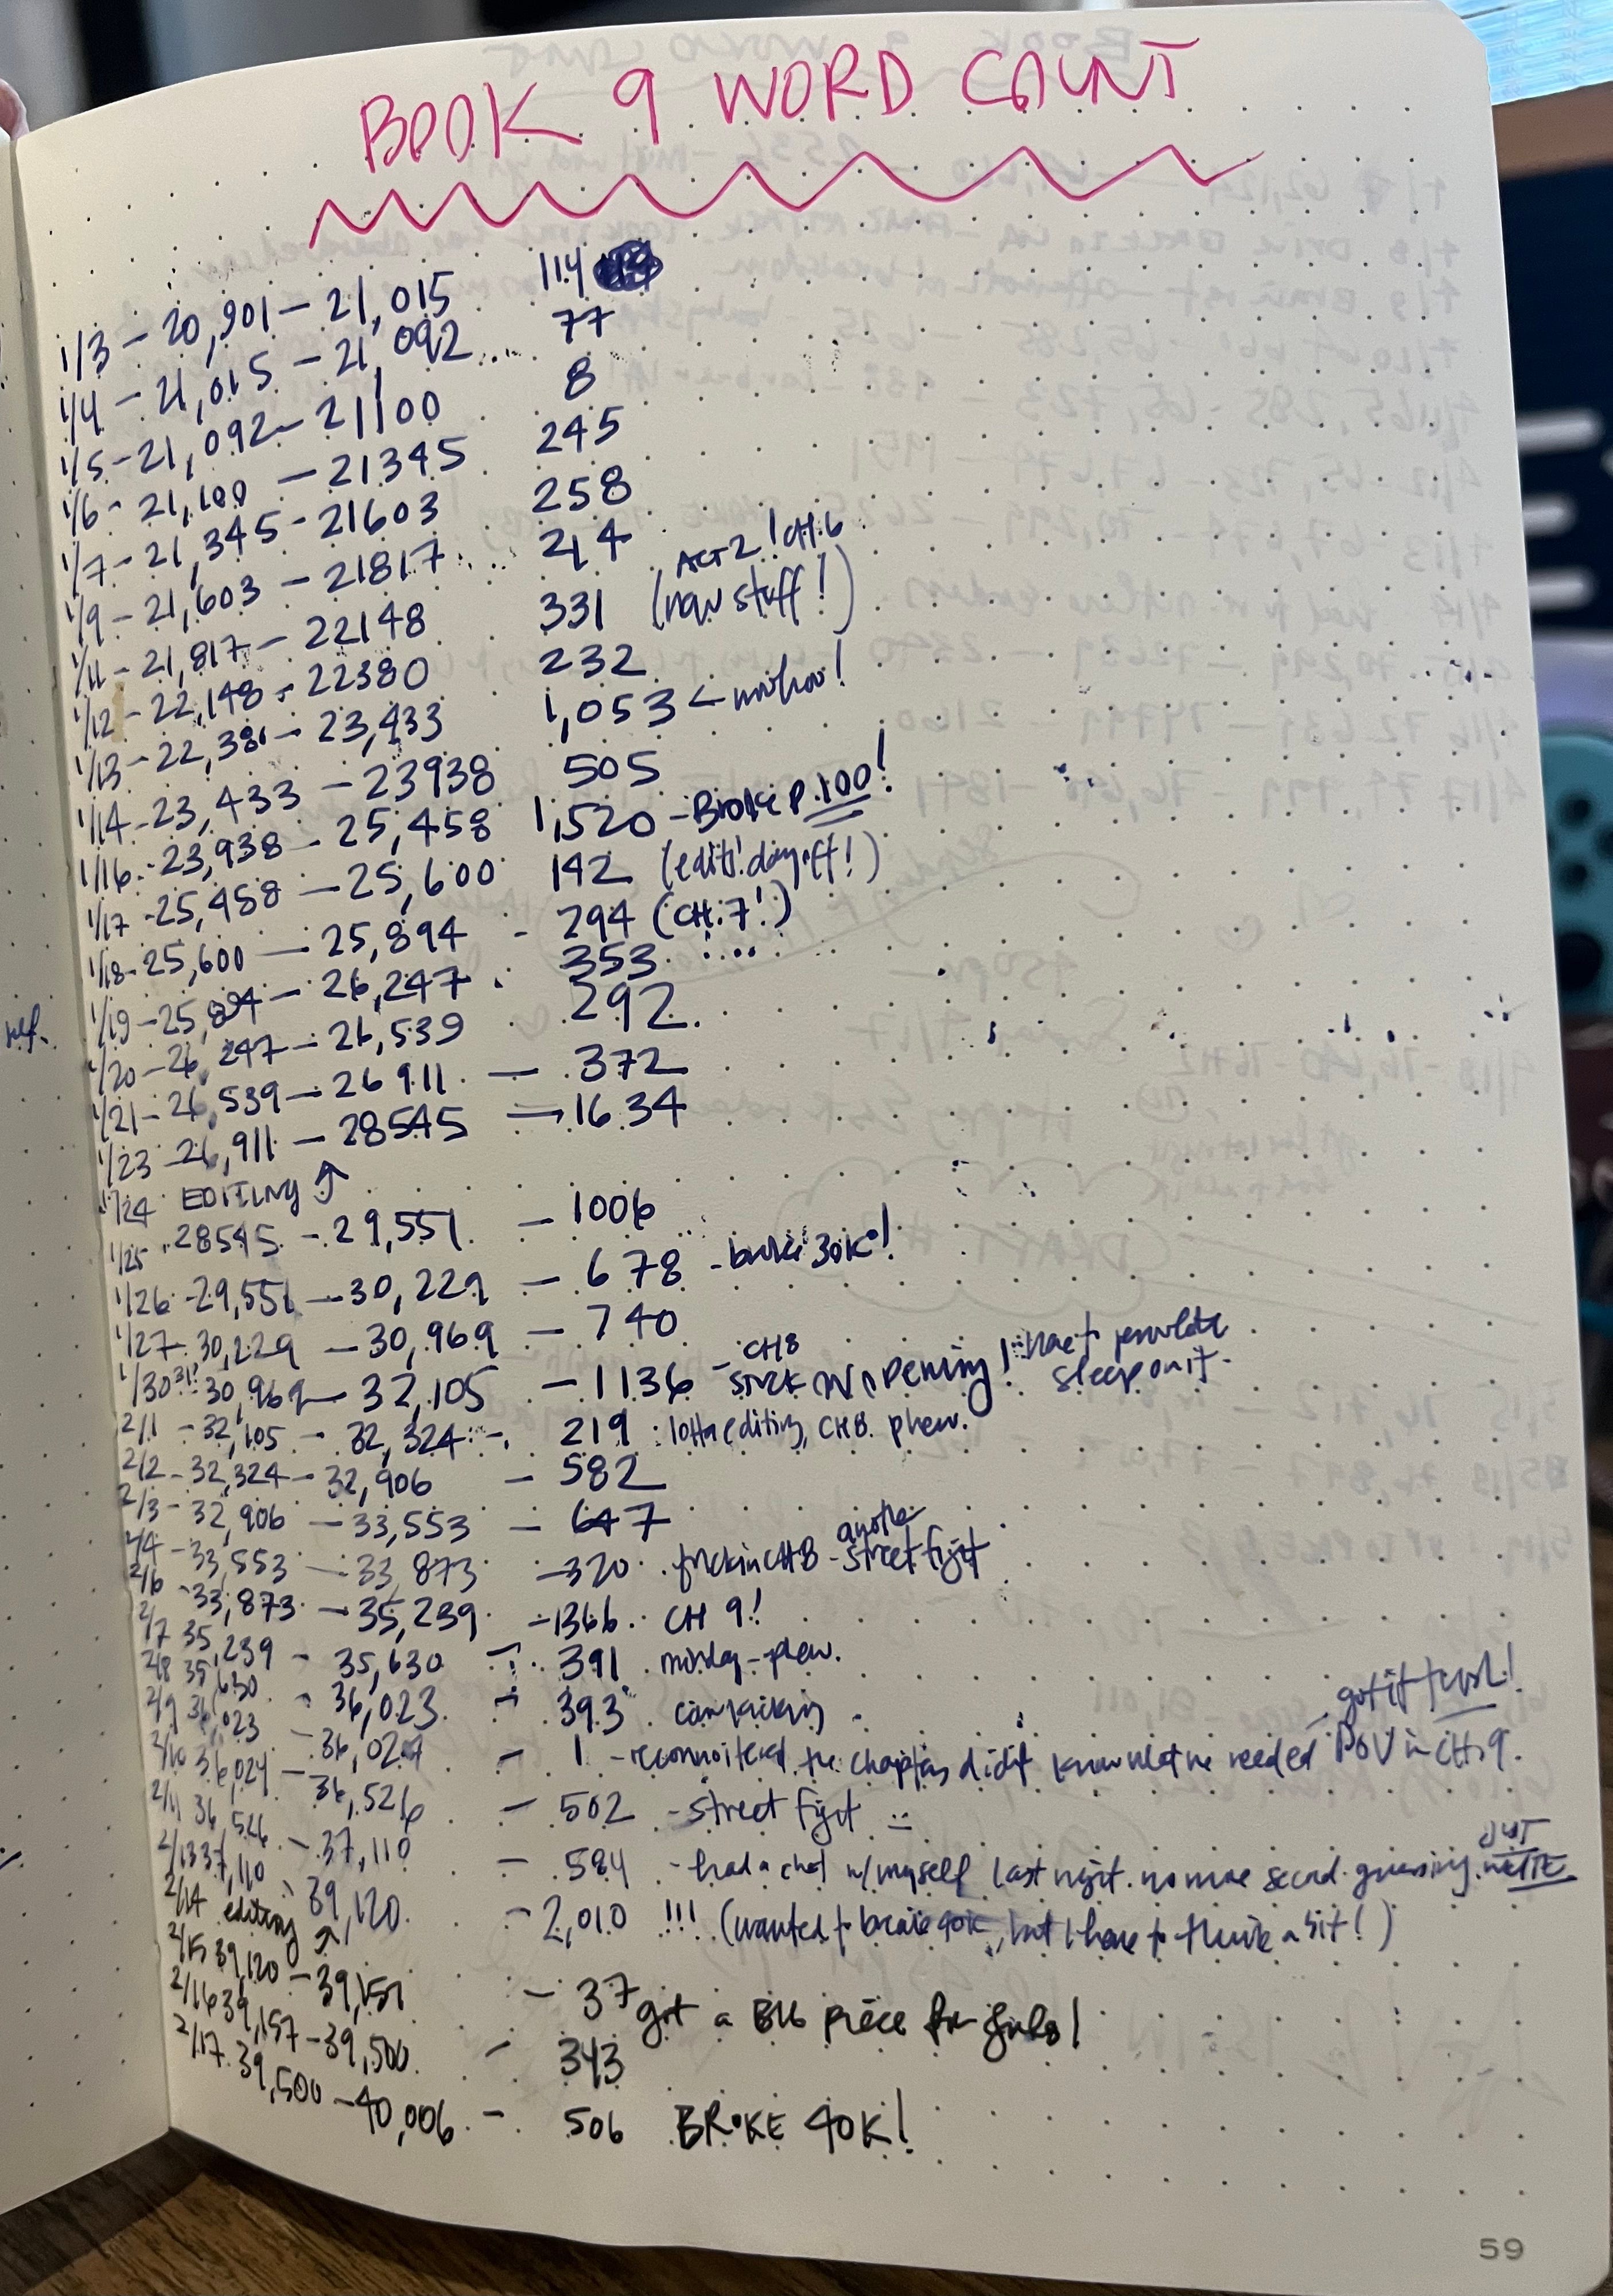 BOOK 9 WORD COUNT
1/3 - 20,901 - 21,015 114
1/4 - 21,015 - 21,092 77
1/5 - 21,092 - 21100 8
1/6 - 21,100 - 21345 245
1/7 - 21,345 - 21603 258
1/9 - 21,603 - 21817 214
ACT 2! CH. 6
1/11 - 21,817 - 22148 331 (new stuff!)
1/12 - 22,148 - 22380 232
1/13 - 22,380 - 23,433 1,053 < woohoo!
1/14 - 23,433 - 23938 505
1/16 - 23,938 - 25,458 1,520 - Broke p. 100!
1/17 - 25,458 - 25,600 142 (edits! day off!)
1/18 - 25,600 - 25,894 - 294 (CH. 7!)
1/19 - 25,894 - 26,247 353
1/20 - 26,247 - 26,539 292
1/21 - 26,539 - 26911 - 372
1/23 - 26,911 - 28545 - 1634
1/24 EDITING ↑
1/25 28545 - 29,551 - 1006
1/26 - 29,551 - 30,229 - 678 - broke 30K!
1/27 - 30,229 - 30,969 - 740
1/30 31! - 30,969 - 32,105 - 1136 - CH 8 stuck w/ opening! have to percolate sleep on it.
2/1 - 32,105 - 32,324 - 219 : lotta editing, CH 8. phew.
2/2 - 32,324 - 32,906 - 582
2/3 - 32,906 - 33,553 - 647
2/4 - 33,553 - 33,873 - 320 . frickin CH 8 - another street fight
2/6 - 33,873 - 35,239 - 1366 . CH 9!
2/7 35,239 - 35,630 - 391 . - phew.
2/8 35,630 - 36,023 - 393 .
got it tho!
2/9 36,023 - 36,024 - 1 - reconnoitered the chapter, didn't know what we needed POV in CH. 9.
2/10 36,024 - 36,526 - 502 - street fight
2/11 36,526 - 37,110 - 584 - had a chat w/ myself last night. no more second guessing. JUST WRITE
2/13 37,110 - 39,120 - 2,010 !!! (wanted to break 40K, but I have to think a bit!)
2/14 editing ↑
2/15 39,120 - 39,157 - 37 got a BIG piece
2/16 39,157 - 39,500 - 343
2/17 39,500 - 40,006 - 506 BROKE 40K!
59